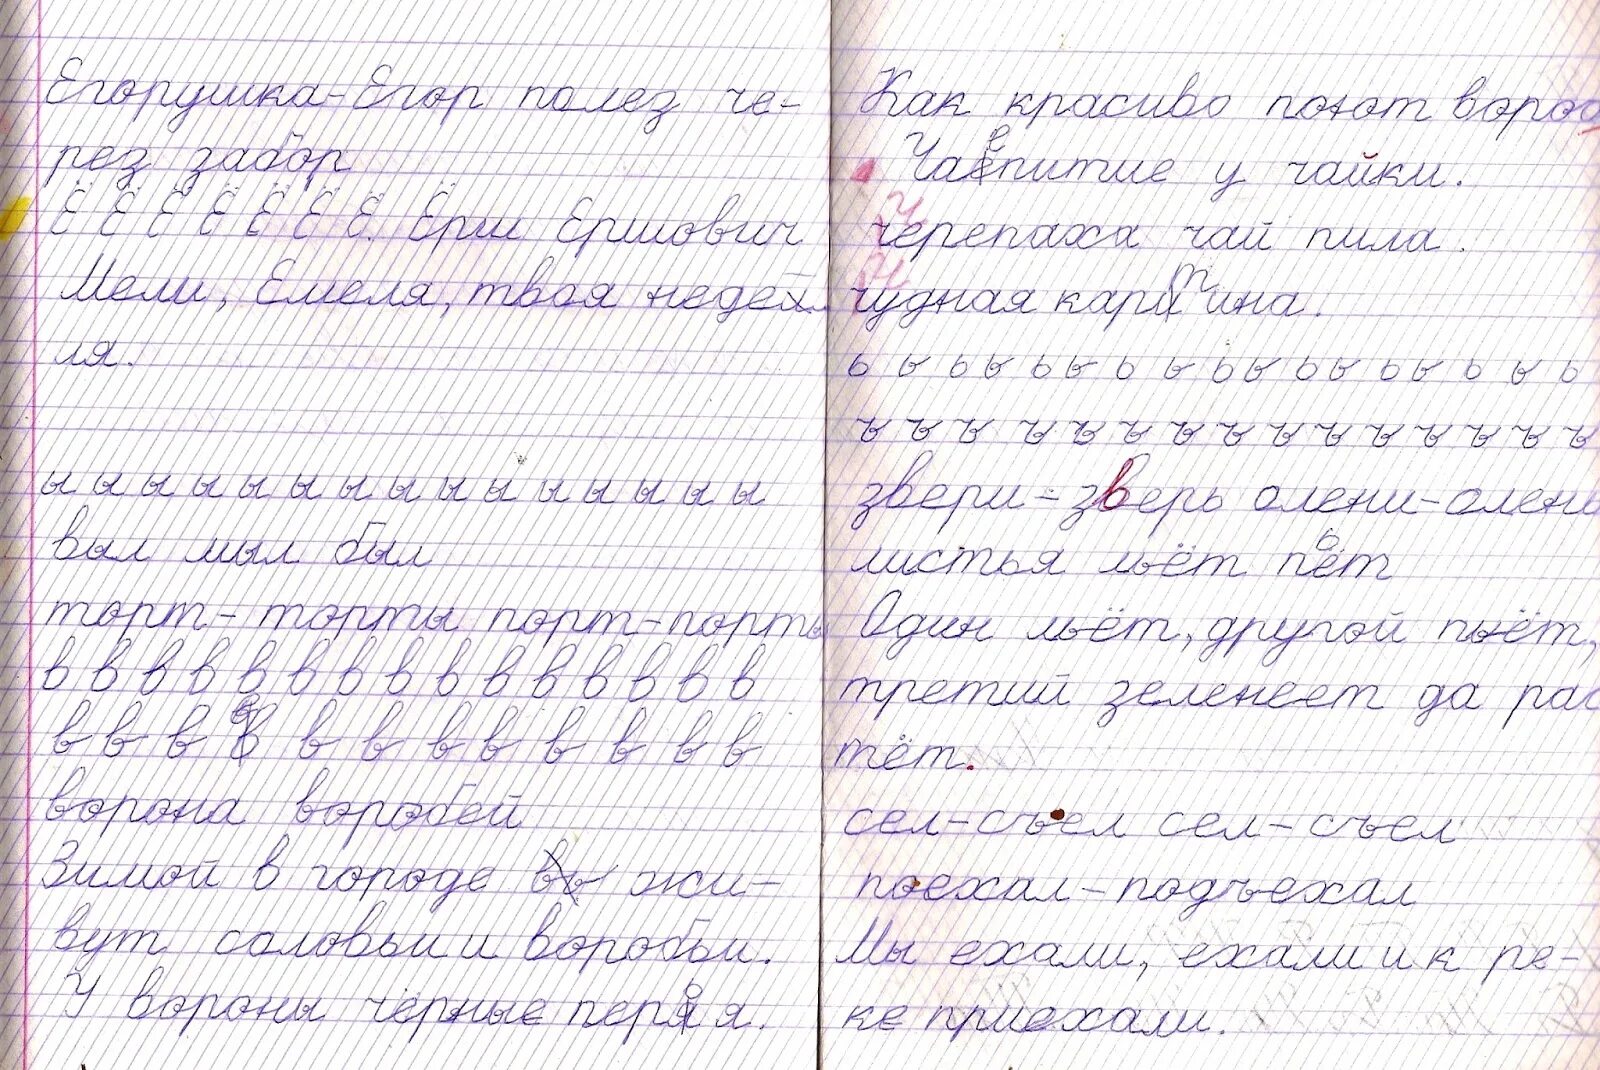 Егорушка-Егор полез че-
рез забор
Ё Ё Ё Ё Ё Ё Ё. Ёрш Ершович
Мели, Емеля, твоя неде
ля.
ы ы ы ы ы ы ы ы ы ы ы ы ы ы ы
выл мыл был
торт-торты порт-порты
в в в в в в в в в в в в в в в
в в в в в в в в в в в в
ворона воробей
Зимой в городе жи-
вут соловьи и воробьи.
У вороны чёрные перья.
Как красиво поют воро
Чаепитие у чайки.
черепаха чай пила.
чудная картина.
ь ь ь ь ь ь ь ь ь ь ь ь ь ь ь ь ь
ъ ъ ъ ъ ъ ъ ъ ъ ъ ъ ъ ъ ъ ъ ъ
звери-зверь олени-олень
листья льёт пьёт
Один льёт, другой пьёт,
третий зеленеет да рас
тёт.
сел-съел сел-съел
поехал-подъехал
Мы ехали, ехали и к ре-
ке приехали.